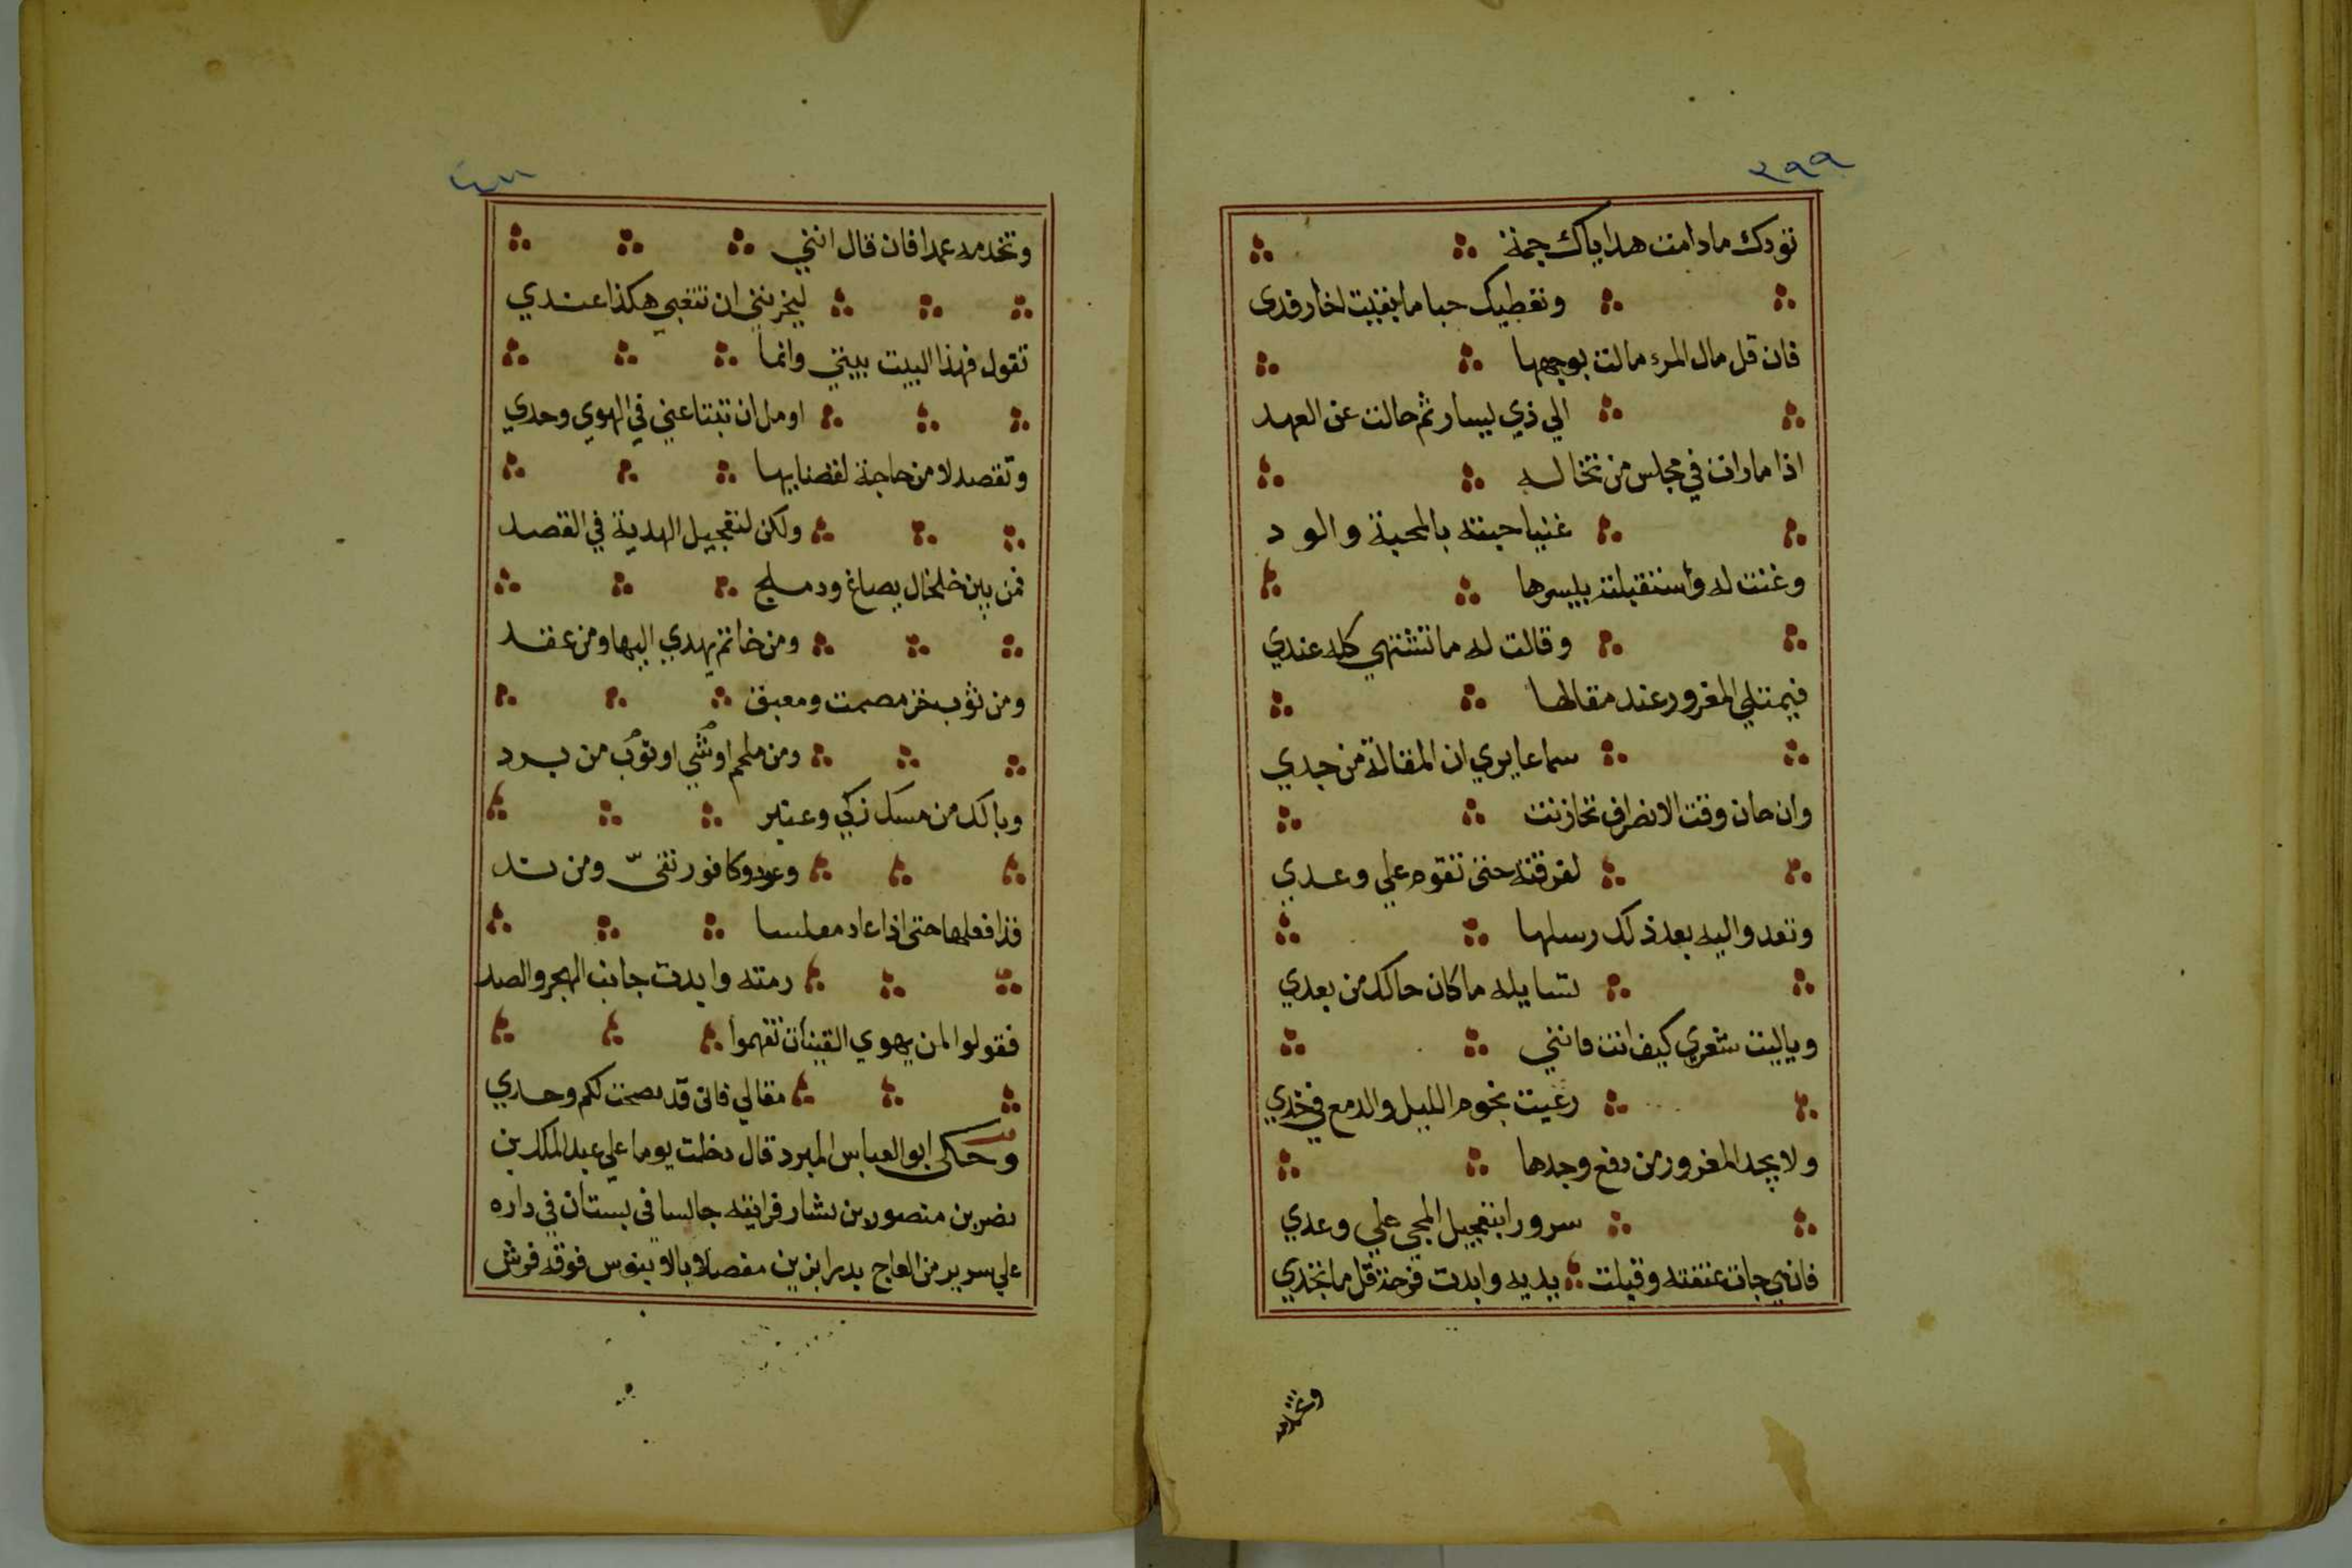 ٣٩٩
تودك مادامت هداياك جمة
وتعطيك حبا ما بقيت لها رفدى
فان قل مال المرء مالت بوجهها
الي ذي يسار ثم حالت عن العهد
اذا مارات في مجلس من تخاله
غنيا حبته بالمحبة والود
وغنت له واستقبلته بيسرها
وقالت له ما تشتهي كله عندي
فيمتلي المغرور عند مقالها
سماعا يري ان المقالة من جدي
وان حان وقت الانصراف تحازنت
لفرقته حتى تقوم علي وعدي
وتغدوا اليه بعد ذلك رسلها
تسايله ما كان حالك من بعدي
وياليت شعري كيف انت فانني
رعيت نجوم الليل والدمع في خدي
ولا يجد المغرور من دفع وجدها
سرورا بتعجيل المجي علي وعدي
فان هي جات عنقته وقبلت يديه وابدت فرحة قل ما تجدي
وتخدمه
٤٠٠
وتخدمه عمدا فان قال انني
ليحزنني ان تتعبي هكذا عندي
تقول فهذا البيت بيتي وانما
اومل ان تبتاعني في الهوي وحدي
وتقصد لا من حاجة لفضا بها
ولكن لتعجيل الهدية في القصد
فمن بين خلخال يصاغ ودملج
ومن خاتم يهدي اليها ومن عقد
ومن ثوب خز مصمت ومعبق
ومن ملحم او شي او ثوب من برد
وبالك من مسك زكي وعنبر
وعود وكافور نقيّ ومن ند
فذا فعلها حتى اذا عاد مفلسا
رمته وابدت جانب الهجر والصد
فقولوا لمن يهوي القينات تفهموا
مقالي فاني قد نصحت لكم وحدي
وحكى ابو العباس المبرد قال دخلت يوما علي عبد الملك بن
نصر بن منصور بن بشار فرايته جالسا في بستان في داره
علي سرير من العاج بدرابزين مفصلا بالابنوس فوقه فرش